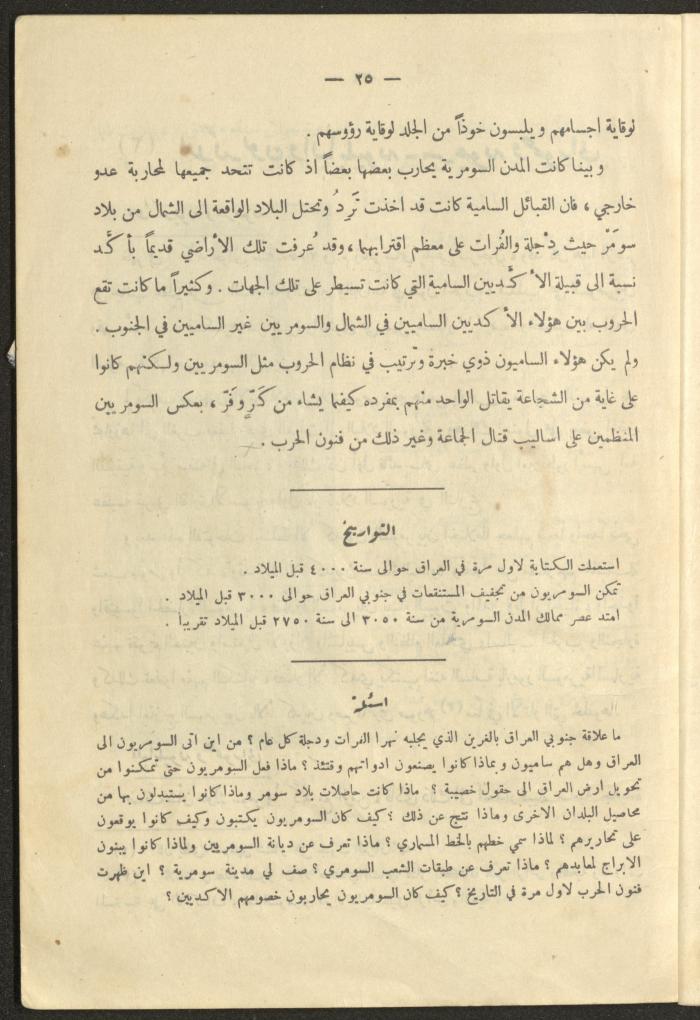 — ٢٥ —
لوقاية اجسامهم ويلبسون خوذاً من الجلد لوقاية رؤوسهم .
وبينما كانت المدن السومرية يحارب بعضها بعضاً اذ كانت تتحد جميعها لمحاربة عدو
خارجي ، فان القبائل السامية كانت قد اخذت تَرِدُ وتحتل البلاد الواقعة الى الشمال من بلاد
سومَرْ حيث دِجلة والفُرات على معظم اقترابهما ، وقد عُرفت تلك الأراضي قديماً بأكَّد
نسبة الى قبيلة الأكَّديين السامية التي كانت تسيطر على تلك الجهات . وكثيراً ما كانت تقع
الحروب بين هؤلاء الأكديين الساميين في الشمال والسومريين غير الساميين في الجنوب .
ولم يكن هؤلاء الساميون ذوي خبرة وتَرتيب في نظام الحروب مثل السومريين ولكنهم كانوا
على غاية من الشجاعة يقاتل الواحد منهم بمفرده كيفما يشاء من كَرٍّ وفَرّ ، بعكس السومريين
المنظمين على اساليب قتال الجماعة وغير ذلك من فنون الحرب .
التواريخ
استعملت الكتابة لاول مرة في العراق حوالى سنة ٤٠٠٠ قبل الميلاد .
تمكن السومريون من تجفيف المستنقعات في جنوبي العراق حوالى ٣٠٠٠ قبل الميلاد .
امتد عصر ممالك المدن السومرية من سنة ٣٠٥٠ الى سنة ٢٧٥٠ قبل الميلاد تقريباً .
اسئلة
ما علاقة جنوبي العراق بالغرين الذي يجلبه نهرا الفرات ودجلة كل عام ؟ من اين اتى السومريون الى
العراق وهل هم ساميون وبماذا كانوا يصنعون ادواتهم وقتئذ ؟ ماذا فعل السومريون حتى تمكنوا من
تحويل ارض العراق الى حقول خصيبة ؟ ماذا كانت حاصلات بلاد سومر وماذا كانوا يستبدلون بها من
محاصيل البلدان الاخرى وماذا نتج عن ذلك ؟ كيف كان السومريون يكتبون وكيف كانوا يوقعون
على تحاريرهم ؟ لماذا سمي خطهم بالخط المسماري ؟ ماذا تعرف عن ديانة السومريين ولماذا كانوا يبنون
الابراج لمعابدهم ؟ ماذا تعرف عن طبقات الشعب السومري ؟ صف لي مدينة سومرية ؟ اين ظهرت
فنون الحرب لاول مرة في التاريخ ؟ كيف كان السومريون يحاربون خصومهم الاكديين ؟